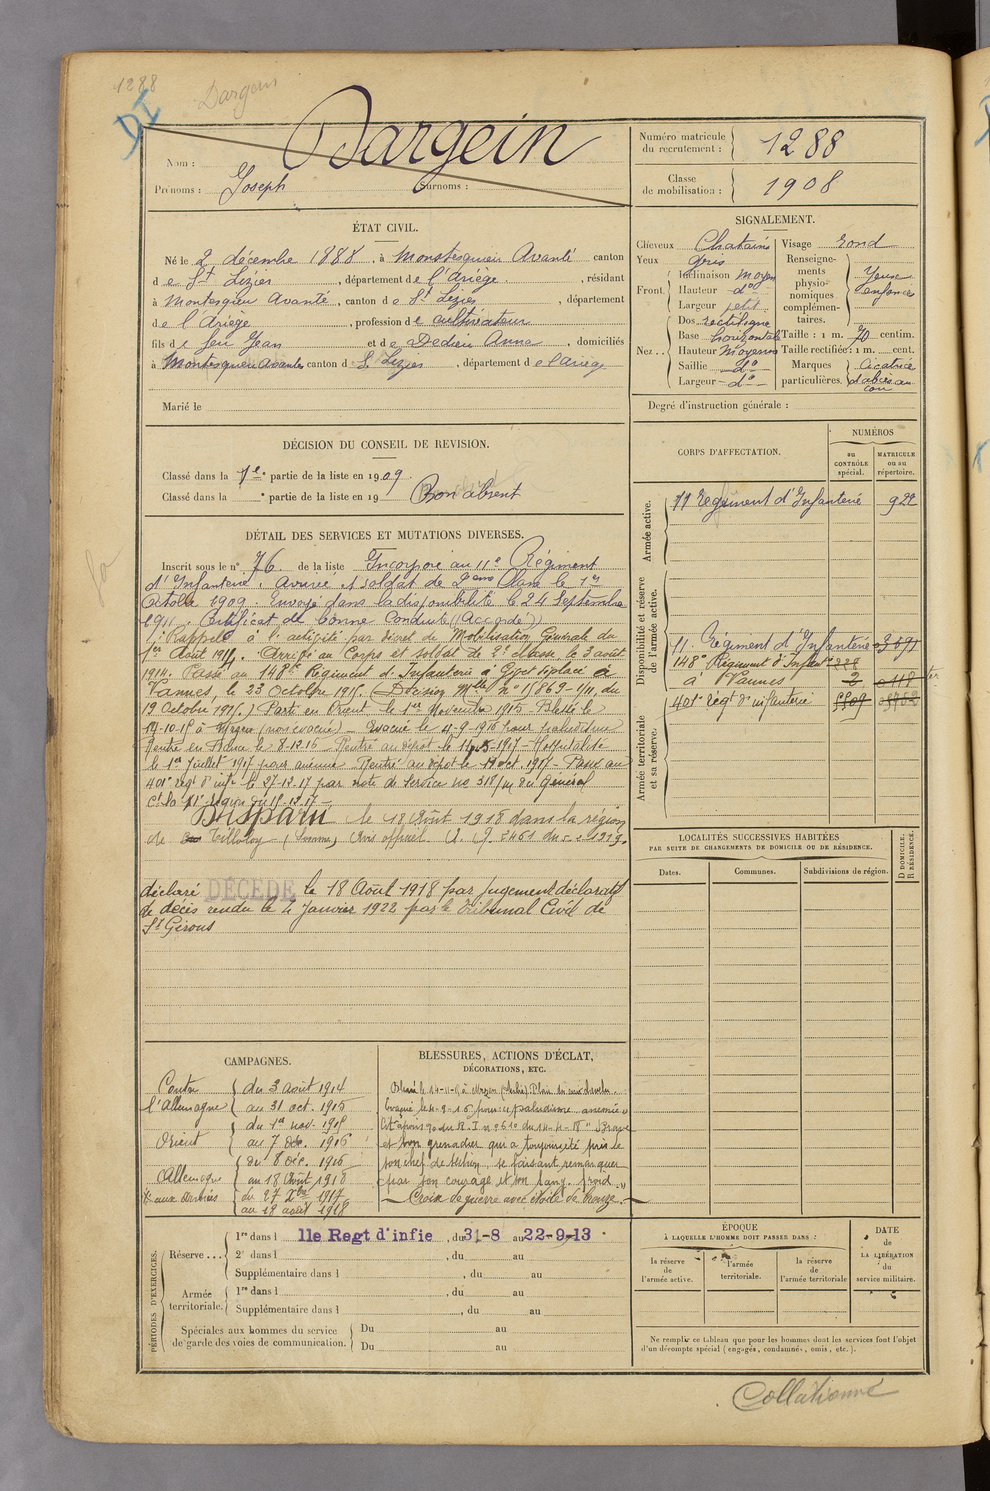 1288
Dargein
DI
Nom : Dargein
Prénoms : Joseph Surnoms :
Numéro matricule du recrutement : 1288
Classe de mobilisation : 1908
ÉTAT CIVIL.
Né le 2 décembre 1888, à Montesquieu Avanté canton
de St Lizier, département de l'Ariège, résidant
à Montesquieu Avanté, canton de St Lizier, département
de l'Ariège, profession de cultivateur
fils de feu Jean et de Dedieu Anna, domiciliés
à Montesquieu Avantés canton de St Lizier, département de l'Ariège
Marié le
SIGNALEMENT.
Cheveux Chatains
Yeux Gris
Front Inclinaison moyen
Hauteur do
Largeur petit
Nez Dos rectiligne
Base horizontale
Hauteur Moyenne
Saillie do
Largeur do
Visage rond
Renseignements physionomiques complémentaires.
Taille : 1 m. 70 centim.
Taille rectifiée : 1 m. cent.
Marques particulières. Cicatrice d'abcès au cou
Degré d'instruction générale :
DÉCISION DU CONSEIL DE REVISION.
Classé dans la 1e partie de la liste en 1909.
Classé dans la partie de la liste en 19 Bon absent
CORPS D'AFFECTATION.
NUMÉROS
au CONTRÔLE spécial.
MATRICULE ou au répertoire.
Armée active.
11 Régiment d'Infanterie 922
Disponibilité et réserve de l'armée active.
11. Régiment d'Infanterie
148e Régiment d'Infant
à Vannes
Armée territoriale et sa réserve.
401e régt d'infanterie
DÉTAIL DES SERVICES ET MUTATIONS DIVERSES.
Inscrit sous le n° 76 de la liste Incorporé au 11e Régiment
d'Infanterie. Arrivé et soldat de 2eme Classe le 1er
Octobre 1909. Envoyé dans la disponibilité le 24 Septembre
1911. Certificat de bonne Conduite (Accordé)
Rappelé à l'activité par décret de Mobilisation Générale du
1er Août 1914. Arrivé au Corps et soldat de 2e classe, le 3 août
1914. Passé au 148e Régiment d'Infanterie à Givet déplacé à
Vannes, le 23 Octobre 1915. (Décision Mlle n° 15869-1/11, du
19 Octobre 1915.) Parti en Orient le 1er Novembre 1915. Blessé le
(non évacué) Evacué le 4-9-1916 pour paludisme
Rentré en France le 8-12-16 Rentré au dépôt le 1917 Hospitalisé
le 1er Juillet 1917 pour anémie Rentré au dépôt le oct. 1917 Passé au
401e régt d'infie le 27-12-17 par note de service no 318/m du Général
Ct la 11e région du 15-12-17
Disparu le 18 Août 1918 dans la région
de Tilloloy (Somme) Avis officiel
déclaré DÉCÉDÉ le 18 Août 1918 par jugement déclaratif
de décès rendu le 4 Janvier 1922 par le Tribunal Civil de
St Girons
LOCALITÉS SUCCESSIVES HABITÉES
PAR SUITE DE CHANGEMENTS DE DOMICILE OU DE RÉSIDENCE.
Dates. Communes. Subdivisions de région. D DOMICILE. R RÉSIDENCE.
CAMPAGNES.
Contre l'Allemagne du 3 août 1914
au 31 oct. 1915
Orient du 1er nov. 1915
au 7 dec. 1916
Allemagne du 8 déc. 1916
au 18 Août 1918
du 27 Xbre 1917
au 18 août 1918
BLESSURES, ACTIONS D'ÉCLAT,
DÉCORATIONS, ETC.
et bon grenadier qui a toujours été près de
son chef de section, se faisant remarquer
par son courage et son sang froid »
Croix de guerre avec étoile de bronze.
PÉRIODES D'EXERCICES.
Réserve 1re dans l 11e Regt d'infie, du 31-8 au 22-9-13
2e dans l , du au
Supplémentaire dans l , du au
Armée territoriale. 1re dans l , du au
Supplémentaire dans l , du au
Spéciales aux hommes du service de garde des voies de communication. Du au
Du au
ÉPOQUE
À LAQUELLE L'HOMME DOIT PASSER DANS :
la réserve de l'armée active.
l'armée territoriale.
la réserve de l'armée territoriale
DATE DE LA LIBÉRATION du service militaire.
Ne remplir ce tableau que pour les hommes dont les services font l'objet
d'un décompte spécial (engagés, condamnés, omis, etc.).
Collationné